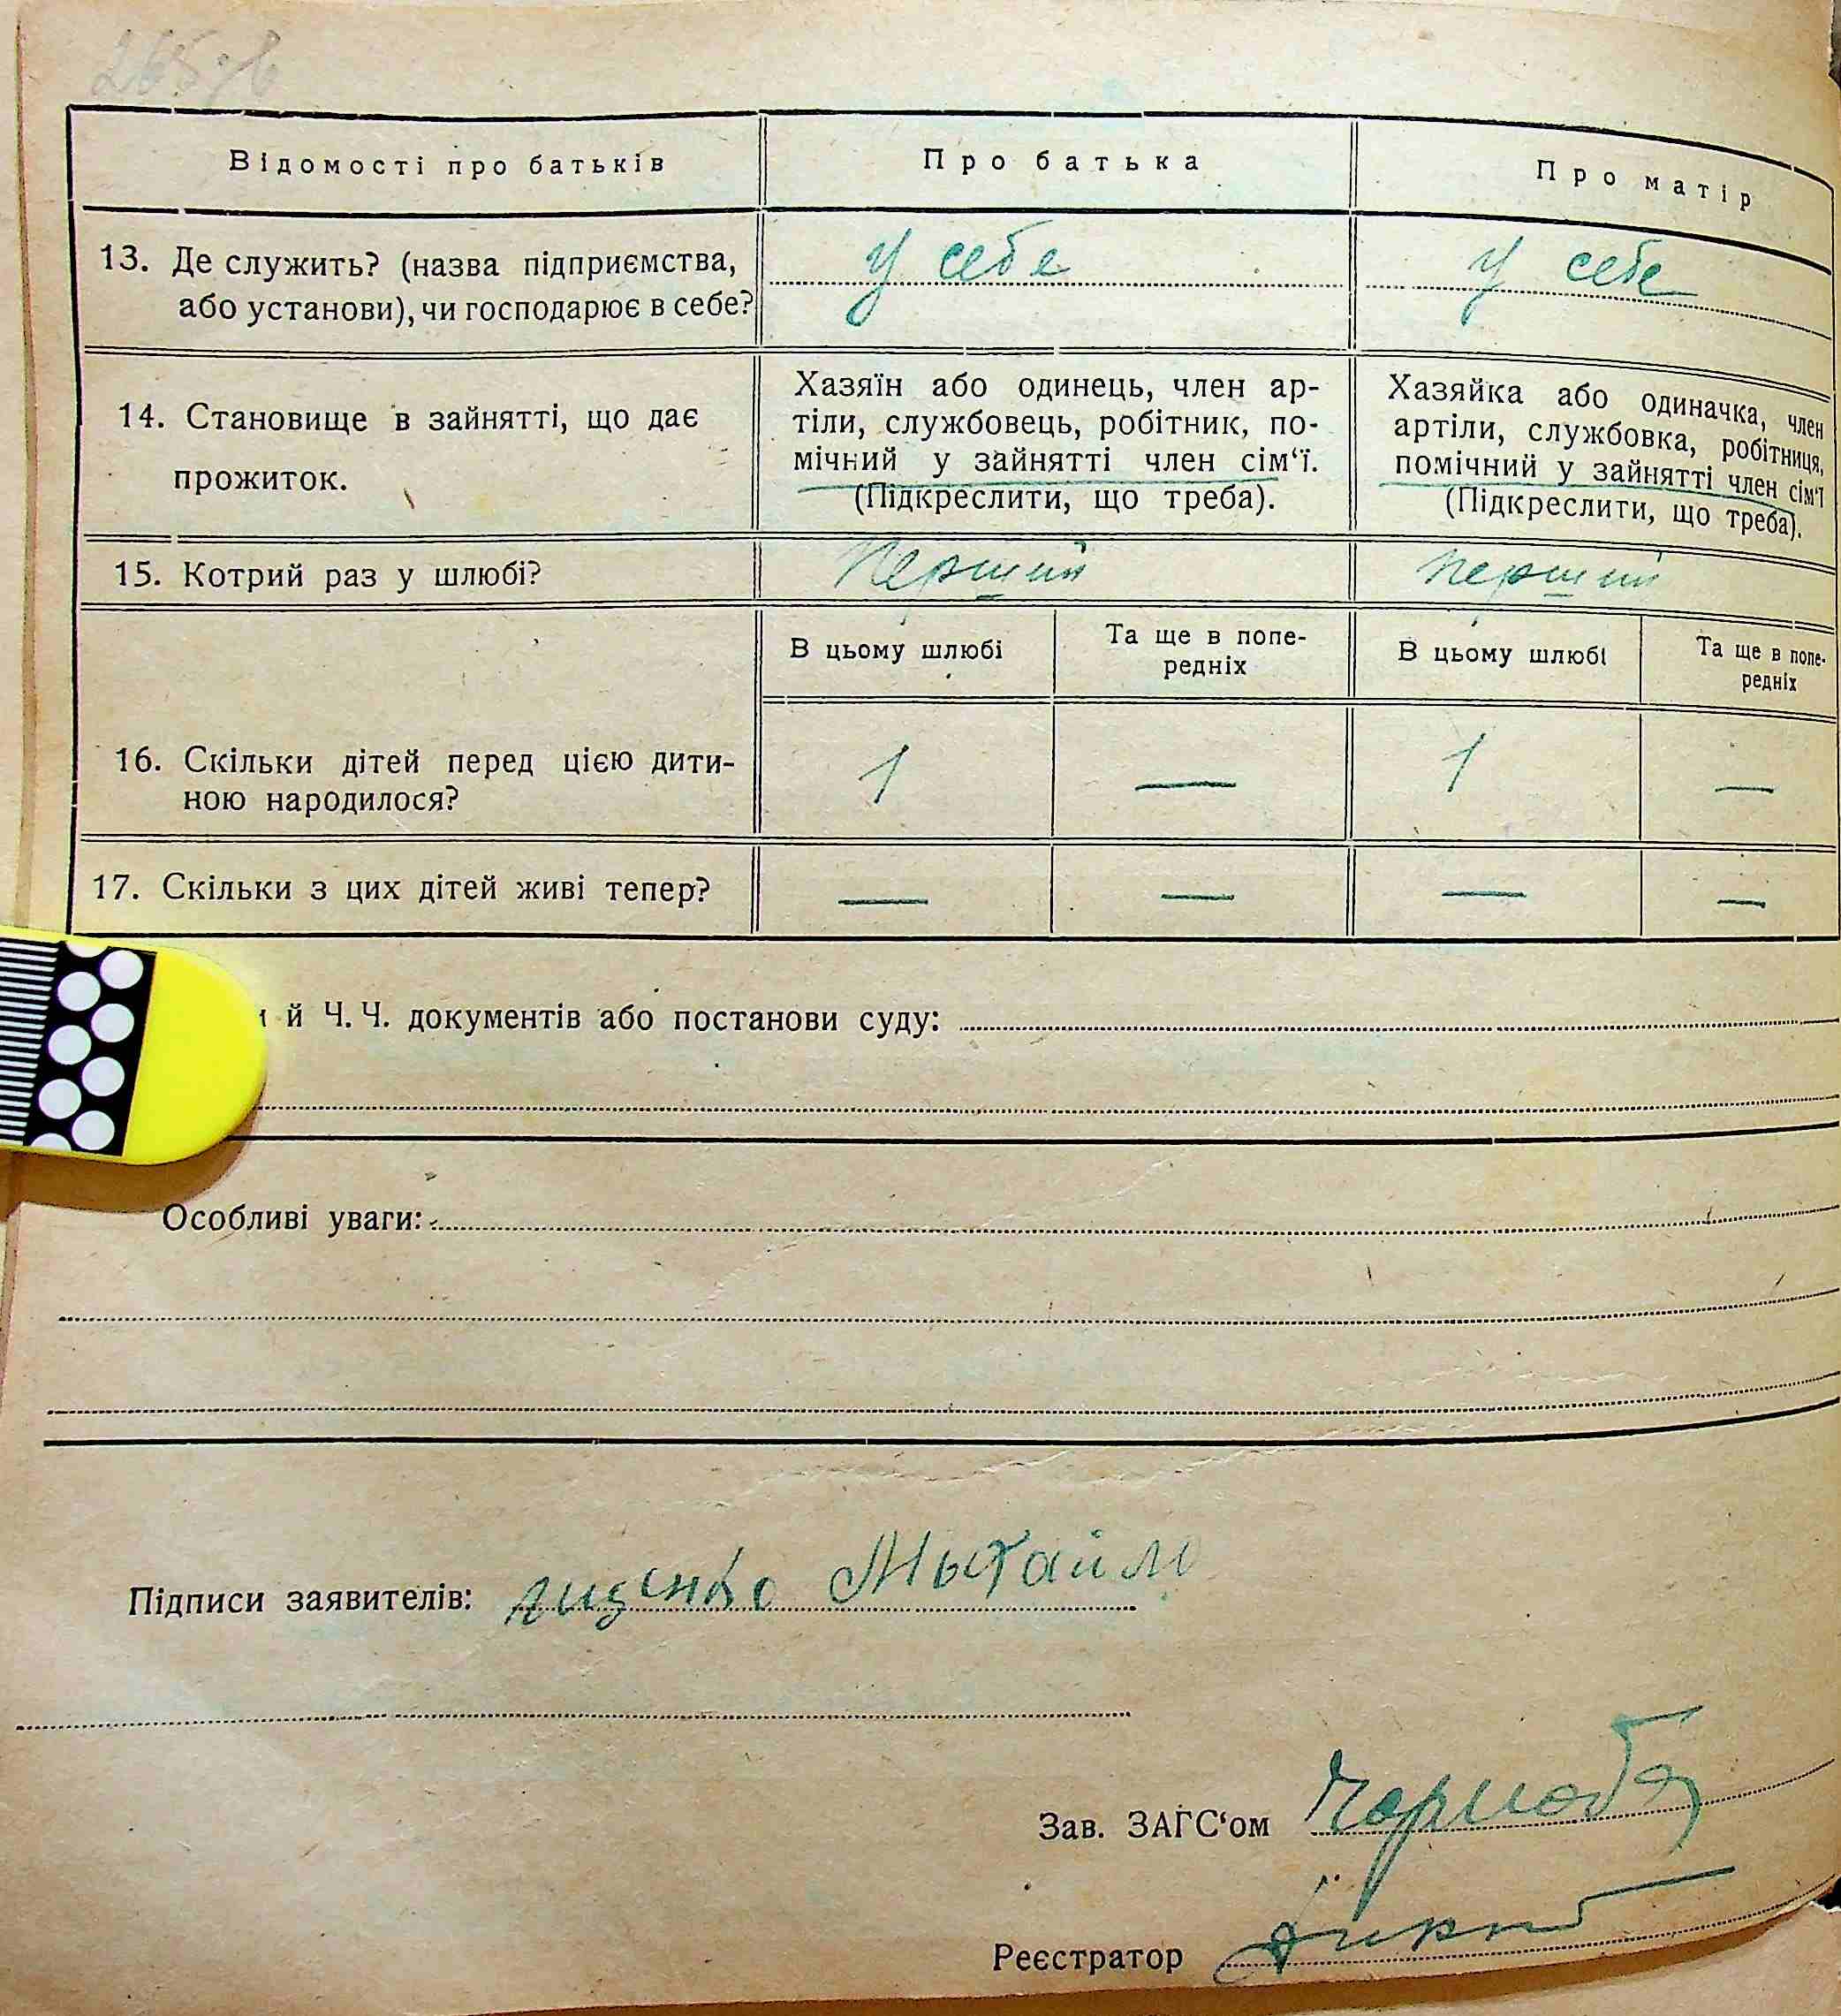 265 зв
Відомості про батьків
Про батька
Про матір
13. Де служить? (назва підприємства,
або установи), чи господарює в себе?
у себе
у себе
14. Становище в зайнятті, що дає
прожиток.
Хазяїн або одинець, член ар-
тіли, службовець, робітник, по-
мічний у зайнятті член сім‘ї.
(Підкреслити, що треба).
Хазяйка або одиначка, член
артіли, службовка, робітниця,
помічний у зайнятті член сім‘ї
(Підкреслити, що треба).
15. Котрий раз у шлюбі?
перший
перший
В цьому шлюбі
Та ще в попе-
редніх
В цьому шлюбі
Та ще в попе-
редніх
16. Скільки дітей перед цією дити-
ною народилося?
1 — 1 —
17. Скільки з цих дітей живі тепер?
— — — —
й Ч. Ч. документів або постанови суду:
Особливі уваги:
Підписи заявителів: лиценко Мыхайло
Зав. ЗАГС‘ом
Реєстратор